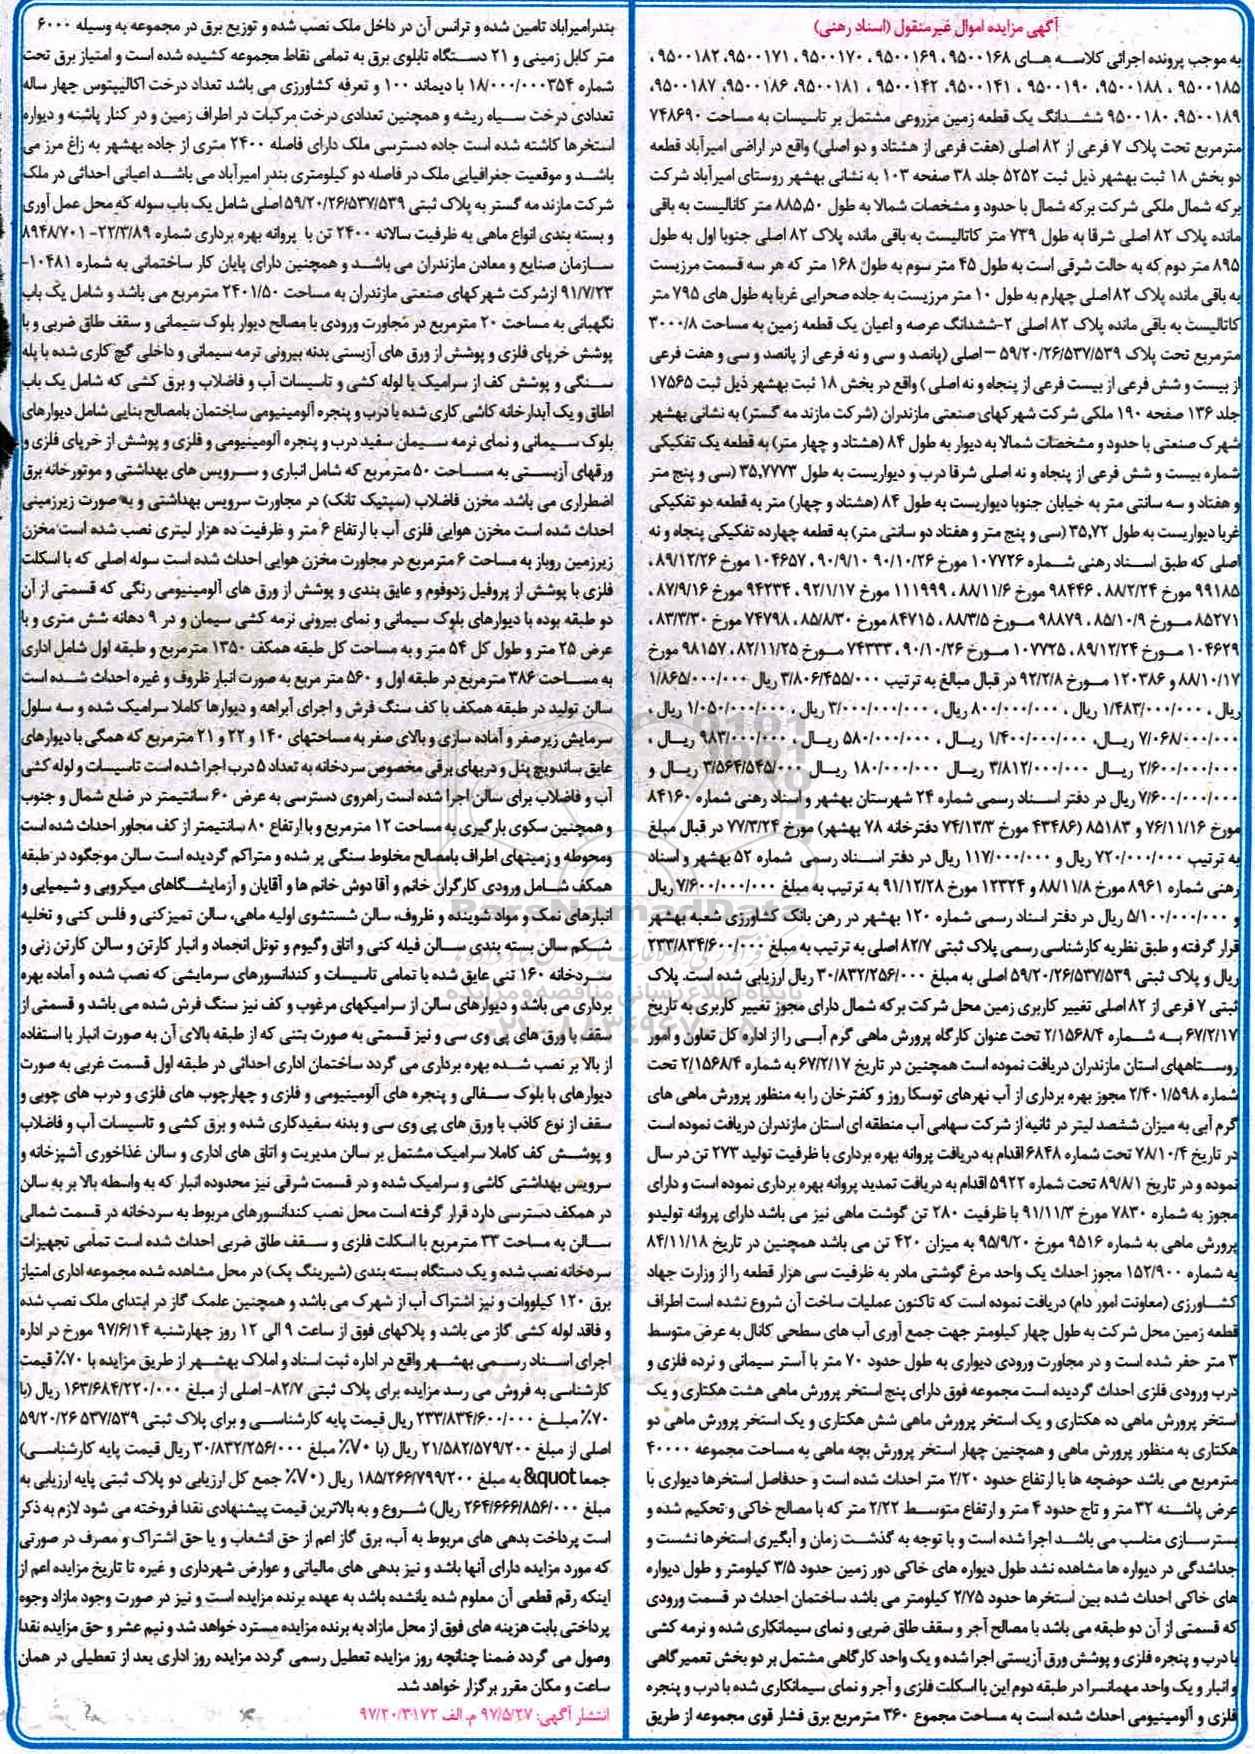 آگهی مزایده اموال غیرمنقول (اسناد رهنی)
به موجب پرونده اجرائی کلاسه های ۹۵۰۰۱۶۸ ، ۹۵۰۰۱۶۹ ، ۹۵۰۰۱۷۰ ، ۹۵۰۰۱۷۱، ۹۵۰۰۱۸۲ ،
۹۵۰۰۱۸۵ ، ۹۵۰۰۱۸۸، ۹۵۰۰۱۹۰ ، ۹۵۰۰۱۴۱، ۹۵۰۰۱۴۲ ، ۹۵۰۰۱۸۱، ۹۵۰۰۱۸۶، ۹۵۰۰۱۸۷،
۹۵۰۰۱۸۹، ۹۵۰۰۱۸۰ ششدانگ یک قطعه زمین مزروعی مشتمل بر تاسیسات به مساحت ۷۴۸۶۹۰
مترمربع تحت پلاک ۷ فرعی از ۸۲ اصلی (هفت فرعی از هشتاد و دو اصلی) واقع در اراضی امیرآباد قطعه
دو بخش ۱۸ ثبت بهشهر ذیل ثبت ۵۲۵۲ جلد ۳۸ صفحه ۱۰۳ به نشانی بهشهر روستای امیرآباد شرکت
برکه شمال ملکی شرکت برکه شمال با حدود و مشخصات شمالا به طول ۸۸۵,۵۰ متر کانالیست به باقی
مانده پلاک ۸۲ اصلی شرقا به طول ۷۳۹ متر کاتالیست به باقی مانده پلاک ۸۲ اصلی جنوبا اول به طول
۸۹۵ متر دوم که به حالت شرقی است به طول ۴۵ متر سوم به طول ۱۶۸ متر که هر سه قسمت مرزیست
به باقی مانده پلاک ۸۲ اصلی چهارم به طول ۱۰ متر مرزیست به جاده صحرایی غربا به طول های ۷۹۵ متر
کاتالیست به باقی مانده پلاک ۸۲ اصلی ۲-ششدانگ عرصه و اعیان یک قطعه زمین به مساحت ۳۰۰۰/۸
مترمربع تحت پلاک ۵۹/۲۰/۲۶/۵۳۷/۵۳۹ – اصلی (پانصد و سی و نه فرعی از پانصد و سی و هفت فرعی
از بیست و شش فرعی از بیست فرعی از پنجاه و نه اصلی ) واقع در بخش ۱۸ ثبت بهشهر ذیل ثبت ۱۷۵۶۵
جلد ۱۳۶ صفحه ۱۹۰ ملکی شرکت شهرکهای صنعتی مازندران (شرکت مازند مه گستر) به نشانی بهشهر
شهرک صنعتی با حدود و مشخصات شمالا به دیوار به طول ۸۴ (هشتاد و چهار متر) به قطعه یک تفکیکی
شماره بیست و شش فرعی از پنجاه و نه اصلی شرقا درب و دیواریست به طول ۳۵,۷۷۷۳ (سی و پنج متر
و هفتاد و سه سانتی متر به خیابان جنوبا دیواریست به طول ۸۴ (هشتاد و چهار) متر به قطعه دو تفکیکی
غربا دیواریست به طول ۳۵,۷۲ (سی و پنج متر و هفتاد دو سانتی متر) به قطعه چهارده تفکیکی پنجاه و نه
اصلی که طبق اسناد رهنی شماره ۱۰۷۷۲۶ مورخ ۹۰/۱۰/۲۶ ، ۹۰/۹/۱۰ ، ۱۰۴۶۵۷ مورخ ۸۹/۱۲/۲۶ ،
۹۹۱۸۵ مورخ ۸۸/۲/۲۴ ، ۹۸۴۴۶ مورخ ۸۸/۱۱/۶ ، ۱۱۱۹۹۹ مورخ ۹۲/۱/۱۷ ، ۹۴۲۳۴ مورخ ۸۷/۹/۱۶ ،
۸۵۲۷۱ مورخ ۸۵/۱۰/۹ ، ۹۸۸۷۹ مورخ ۸۸/۳/۵ ، ۸۴۷۱۵ مورخ ۸۵/۸/۳۰ ، ۷۴۷۹۸ مورخ ۸۳/۳/۳۰ ،
۱۰۴۶۲۹ مورخ ۸۹/۱۲/۲۴ ، ۱۰۷۷۲۵ مورخ ۹۰/۱۰/۲۶ ، ۷۴۳۳۳ مورخ ۸۲/۱۱/۲۵ ، ۹۸۱۵۷ مورخ
۸۸/۱۰/۱۷ و ۱۲۰۳۸۶ مورخ ۹۲/۲/۸ در قبال مبالغ به ترتیب ۳/۸۰۶/۴۵۵/۰۰۰ ریال ۱/۸۶۵/۰۰۰/۰۰۰
ریال ، ۱/۴۸۳/۰۰۰/۰۰۰ ریال ، ۸۰۰/۰۰۰/۰۰۰ ریال ، ۳/۰۰۰/۰۰۰/۰۰۰ ریال ، ۱/۰۵۰/۰۰۰/۰۰۰ ریال ،
۷/۰۶۸/۰۰۰/۰۰۰ ریال، ۱/۴۰۰/۰۰۰/۰۰۰ ریال ، ۵۸۰/۰۰۰/۰۰۰ ریال ، ۹۸۳/۰۰۰/۰۰۰ ریال ،
۲/۶۰۰/۰۰۰/۰۰۰ ریال ۳/۸۱۲/۰۰۰/۰۰۰ ریال ۱۸۰/۰۰۰/۰۰۰ ریال ۳/۵۶۴/۵۴۵/۰۰۰ ریال و
۷/۶۰۰/۰۰۰/۰۰۰ ریال در دفتر اسناد رسمی شماره ۲۴ شهرستان بهشهر و اسناد رهنی شماره ۸۴۱۶۰
مورخ ۷۶/۱۱/۱۶ و ۸۵۱۸۳ (۴۳۴۸۶ مورخ ۷۴/۱۳/۳ دفترخانه ۷۸ بهشهر) مورخ ۷۷/۳/۲۴ در قبال مبلغ
به ترتیب ۷۲۰/۰۰۰/۰۰۰ ریال و ۱۱۷/۰۰۰/۰۰۰ ریال در دفتر اسناد رسمی شماره ۵۲ بهشهر و اسناد
رهنی شماره ۸۹۶۱ مورخ ۸۸/۱۱/۸ و ۱۲۳۲۴ مورخ ۹۱/۱۲/۲۸ به ترتیب به مبلغ ۷/۶۰۰/۰۰۰/۰۰۰ ریال
و ۵/۱۰۰/۰۰۰/۰۰۰ ریال در دفتر اسناد رسمی شماره ۱۲۰ بهشهر در رهن بانک کشاورزی شعبه بهشهر
قرار گرفته و طبق نظریه کارشناسی رسمی پلاک ثبتی ۸۲/۷ اصلی به ترتیب به مبلغ ۲۳۳/۸۳۴/۶۰۰/۰۰۰
ریال و پلاک ثبتی ۵۹/۲۰/۲۶/۵۳۷/۵۳۹ اصلی به مبلغ ۳۰/۸۳۲/۲۵۶/۰۰۰ ریال ارزیابی شده است. پلاک
ثبتی ۷ فرعی از ۸۲ اصلی تغییر کاربری زمین محل شرکت برکه شمال دارای مجوز تغییر کاربری به تاریخ
۶۷/۲/۱۷ به شماره ۲/۱۵۶۸/۴ تحت عنوان کارگاه پرورش ماهی گرم آبی را از اداره کل تعاون و امور
روستاههای استان مازندران دریافت نموده است همچنین در تاریخ ۶۷/۲/۱۷ به شماره ۲/۱۵۶۸/۴ تحت
شماره ۲/۴۰۱/۵۹۸ مجوز بهره برداری از آب نهرهای توسکا روز و کفترخان را به منظور پرورش ماهی های
گرم آبی به میزان ششصد لیتر در ثانیه از شرکت سهامی آب منطقه ای استان مازندران دریافت نموده است
در تاریخ ۷۸/۱۰/۴ تحت شماره ۶۸۴۸ اقدام به دریافت پروانه بهره برداری با ظرفیت تولید ۲۷۳ تن در سال
نموده و در تاریخ ۸۹/۸/۱ تحت شماره ۵۹۲۲ اقدام به دریافت تمدید پروانه بهره برداری نموده است و دارای
مجوز به شماره ۷۸۳۰ مورخ ۹۱/۱۱/۳ با ظرفیت ۲۸۰ تن گوشت ماهی نیز می باشد دارای پروانه تولیدو
پرورش ماهی به شماره ۹۵۱۶ مورخ ۹۵/۹/۲۰ به میزان ۴۲۰ تن می باشد همچنین در تاریخ ۸۴/۱۱/۱۸
به شماره ۱۵۲/۹۰۰ مجوز احداث یک واحد مرغ گوشتی مادر به ظرفیت سی هزار قطعه را از وزارت جهاد
کشاورزی (معاونت امور دام) دریافت نموده است که تاکنون عملیات ساخت آن شروع نشده است اطراف
قطعه زمین محل شرکت به طول چهار کیلومتر جهت جمع آوری آب های سطحی کانال به عرض متوسط
۳ متر حفر شده است و در مجاورت ورودی دیواری به طول حدود ۷۰ متر با آستر سیمانی و نرده فلزی و
درب ورودی فلزی احداث گردیده است مجموعه فوق دارای پنج استخر پرورش ماهی هشت هکتاری و یک
استخر پرورش ماهی ده هکتاری و یک استخر پرورش ماهی شش هکتاری و یک استخر پرورش ماهی دو
هکتاری به منظور پرورش ماهی و همچنین چهار استخر پرورش بچه ماهی به مساحت مجموعه ۴۰۰۰۰
مترمربع می باشد حوضچه ها با ارتفاع حدود ۲/۲۰ متر احداث شده است و حدفاصل استخرها دیواری با
عرض پاشنه ۳۲ متر و تاج حدود ۴ متر و ارتفاع متوسط ۲/۲۲ متر که با مصالح خاکی و تحکیم شده و
بسترسازی مناسب می باشد اجرا شده است و با توجه به گذشت زمان و آبگیری استخرها نشست و
جداشدگی در دیواره ها مشاهده نشد طول دیواره های خاکی دور زمین حدود ۳/۵ کیلومتر و طول دیواره
های خاکی احداث شده بین استخرها حدود ۲/۷۵ کیلومتر می باشد ساختمان احداث در قسمت ورودی
که قسمتی از آن دو طبقه می باشد با مصالح آجر و سقف طاق ضربی و نمای سیمانکاری شده و نرمه کشی
با درب و پنجره فلزی و پوشش ورق آزیستی اجرا شده و یک واحد کارگاهی مشتمل بر دو بخش تعمیرگاهی
و انبار و یک واحد مهمانسرا در طبقه دوم این با اسکلت فلزی و آجر و نمای سیمانکاری شده با درب و پنجره
فلزی و آلومینیومی احداث شده است به مساحت مجموع ۳۶۰ مترمربع برق فشار قوی مجموعه از طریق
بندرامیرآباد تامین شده و ترانس آن در داخل ملک نصب شده و توزیع برق در مجموعه به وسیله ۶۰۰۰
متر کابل زمینی و ۲۱ دستگاه تابلوی برق به تمامی نقاط مجموعه کشیده شده است و امتیاز برق تحت
شماره ۱۸/۰۰۰/۰۰۰۳۵۴ با دیماند ۱۰۰ و تعرفه کشاورزی می باشد تعداد درخت اکالیپتوس چهار ساله
تعدادی درخت سیاه ریشه و همچنین تعدادی درخت مرکبات در اطراف زمین و در کنار پاشنه و دیواره
استخرها کاشته شده است جاده دسترسی ملک دارای فاصله ۲۴۰۰ متری از جاده بهشهر به زاغ مرز می
باشد و موقعیت جغرافیایی ملک در فاصله دو کیلومتری بندر امیرآباد می باشد اعیانی احداثی در ملک
شرکت مازند مه گستر به پلاک ثبتی ۵۹/۲۰/۲۶/۵۳۷/۵۳۹ اصلی شامل یک باب سوله که محل عمل آوری
و بسته بندی انواع ماهی به ظرفیت سالانه ۲۴۰۰ تن با پروانه بهره برداری شماره ۲۲/۳/۸۹- ۸۹۴۸/۷۰۱
سازمان صنایع و معادن مازندران می باشد و همچنین دارای پایان کار ساختمانی به شماره ۱۰۴۸۱-
۹۱/۷/۲۳ ازشرکت شهرکهای صنعتی مازندران به مساحت ۲۴۰۱/۵۰ مترمربع می باشد و شامل یک باب
نگهبانی به مساحت ۲۰ مترمربع در مجاورت ورودی با مصالح دیوار بلوک سیمانی و سقف طاق ضربی و با
پوشش خرپای فلزی و پوشش از ورق های آزبستی بدنه بیرونی ترمه سیمانی و داخلی گچ کاری شده با پله
سنگی و پوشش کف از سرامیک با لوله کشی و تاسیسات آب و فاضلاب و برق کشی که شامل یک باب
اطاق و یک آبدارخانه کاشی کاری شده با درب و پنجره آلومینیومی ساختمان بامصالح بنایی شامل دیوارهای
بلوک سیمانی و نمای نرمه سیمان سفید درب و پنجره آلومینیومی و فلزی و پوشش از خرپای فلزی و
ورقهای آزبستی به مساحت ۵۰ مترمربع که شامل انباری و سرویس های بهداشتی و موتورخانه برق
اضطراری می باشد. مخزن فاضلاب (سپتیک تانک) در مجاورت سرویس بهداشتی و به صورت زیرزمینی
احداث شده است مخزن هوایی فلزی آب با ارتفاع ۶ متر و ظرفیت ده هزار لیتری نصب شده است مخزن
زیرزمین روباز به مساحت ۶ مترمربع در مجاورت مخزن هوایی احداث شده است سوله اصلی که با اسکلت
فلزی با پوشش از پروفیل زدوفوم و عایق بندی و پوشش از ورق های آلومینیومی رنگی که قسمتی از آن
دو طبقه بوده با دیوارهای بلوک سیمانی و نمای بیرونی نرمه کشی سیمان و در ۹ دهانه شش متری و با
عرض ۲۵ متر و طول کل ۵۴ متر و به مساحت کل طبقه همکف ۱۳۵۰ مترمربع و طبقه اول شامل اداری
به مساحت ۳۸۶ مترمربع در طبقه اول و ۵۶۰ متر مربع به صورت انبار ظروف و غیره احداث شده است
سالن تولید در طبقه همکف با کف سنگ فرش و اجرای آبراهه و دیوارها کاملا سرامیک شده و سه سلول
سرمایش زیرصفر و آماده سازی و بالای صفر به مساحتهای ۱۴۰ و ۲۲ و ۲۱ مترمربع که همگی با دیوارهای
عایق ساندویچ پنل و دربهای برقی مخصوص سردخانه به تعداد ۵ درب اجرا شده است تاسیسات و لوله کشی
آب و فاضلاب برای سالن اجرا شده است راهروی دسترسی به عرض ۶۰ سانتیمتر در ضلع شمال و جنوب
و همچنین سکوی بارگیری به مساحت ۱۲ مترمربع و با ارتفاع ۸۰ سانتیمتر از کف مجاور احداث شده است
ومحوطه و زمینهای اطراف بامصالح مخلوط سنگی پر شده و متراکم گردیده است سالن موجگود در طبقه
همکف شامل ورودی کارگران خانم و آقا دوش خانم ها و آقایان و آزمایشگاهای میکروبی و شیمیایی و
انبارهای نمک و مواد شوینده و ظروف، سالن شستشوی اولیه ماهی، سالن تمیزکنی و فلس کنی و تخلیه
شکم سالن بسته بندی سالن فیله کنی و اتاق وگیوم و تونل انجماد و انبار کارتن و سالن کارتن زنی و
سردخانه ۱۶۰ تنی عایق شده با تمامی تاسیسات و کندانسورهای سرمایشی که نصب شده و آماده بهره
برداری می باشد و دیوارهای سالن از سرامیکهای مرغوب و کف نیز سنگ فرش شده می باشد و قسمتی از
سقف با ورق های پی وی سی و نیز قسمتی به صورت بتنی که از طبقه بالای آن به صورت انبار با استفاده
از بالا بر نصب شده بهره برداری می گردد ساختمان اداری احداثی در طبقه اول قسمت غربی به صورت
دیوارهای با بلوک سفالی و پنجره های آلومینیومی و فلزی و چهارچوب های فلزی و درب های چوبی و
سقف از نوع کاذب با ورق های پی وی سی و بدنه سفیدکاری شده و برق کشی و تاسیسات آب و فاضلاب
و پوشش کف کاملا سرامیک مشتمل بر سالن مدیریت و اتاق های اداری و سالن غذاخوری آشپزخانه و
سرویس بهداشتی کاشی و سرامیک شده و در قسمت شرقی نیز محدوده انبار که به واسطه بالا بر به سالن
در همکف دسترسی دارد قرار گرفته است محل نصب کندانسورهای مربوط به سردخانه در قسمت شمالی
سالن به مساحت ۳۳ مترمربع با اسکلت فلزی و سقف طاق ضربی احداث شده است تمامی تجهیزات
سردخانه نصب شده و یک دستگاه بسته بندی (شیرینگ پک) در محل مشاهده شده مجموعه اداری امتیاز
برق ۱۲۰ کیلووات و نیز اشتراک آب از شهرک می باشد و همچنین علمک گاز در ابتدای ملک نصب شده
و فاقد لوله کشی گاز می باشد و پلاکهای فوق از ساعت ۹ الی ۱۲ روز چهارشنبه ۹۷/۶/۱۴ مورخ در اداره
اجرای اسناد رسمی بهشهر واقع در اداره ثبت اسناد و املاک بهشهر از طریق مزایده با ۷۰٪ قیمت
کارشناسی به فروش می رسد مزایده برای پلاک ثبتی ۸۲/۷- اصلی از مبلغ ۱۶۳/۶۸۴/۲۲۰/۰۰۰ ریال (با
۷۰٪ مبلغ ۲۳۳/۸۳۴/۶۰۰/۰۰۰ ریال قیمت پایه کارشناسی و برای پلاک ثبتی ۵۳۷/۵۳۹ ۵۹/۲۰/۲۶
اصلی از مبلغ ۲۱/۵۸۲/۵۷۹/۲۰۰ ریال (با ۷۰٪ مبلغ ۳۰/۸۳۲/۲۵۶/۰۰۰ ریال قیمت پایه کارشناسی)
جمعا &quot به مبلغ ۱۸۵/۲۶۶/۷۹۹/۲۰۰ ریال (۷۰٪ جمع کل ارزیابی دو پلاک ثبتی پایه ارزیابی به
مبلغ ۲۶۴/۶۶۶/۸۵۶/۰۰۰ ریال) شروع و به بالاترین قیمت پیشنهادی نقدا فروخته می شود لازم به ذکر
است پرداخت بدهی های مربوط به آب، برق گاز اعم از حق انشعاب و یا حق اشتراک و مصرف در صورتی
که مورد مزایده دارای آنها باشد و نیز بدهی های مالیاتی و عوارض شهرداری و غیره تا تاریخ مزایده اعم از
اینکه رقم قطعی آن معلوم شده یانشده باشد به عهده برنده مزایده است و نیز در صورت وجود مازاد وجوه
پرداختی بابت هزینه های فوق از محل مازاد به برنده مزایده مسترد خواهد شد و نیم عشر و حق مزایده نقدا
وصول می گردد ضمنا چنانچه روز مزایده تعطیل رسمی گردد مزایده روز اداری بعد از تعطیلی در همان
ساعت و مکان مقرر برگزار خواهد شد.
انتشار آگهی: ۹۷/۵/۲۷ م. الف ۹۷/۲۰/۳۱۷۲
ParsNamadData
پایگاه اطلاع رسانی مناقصه و مزایده